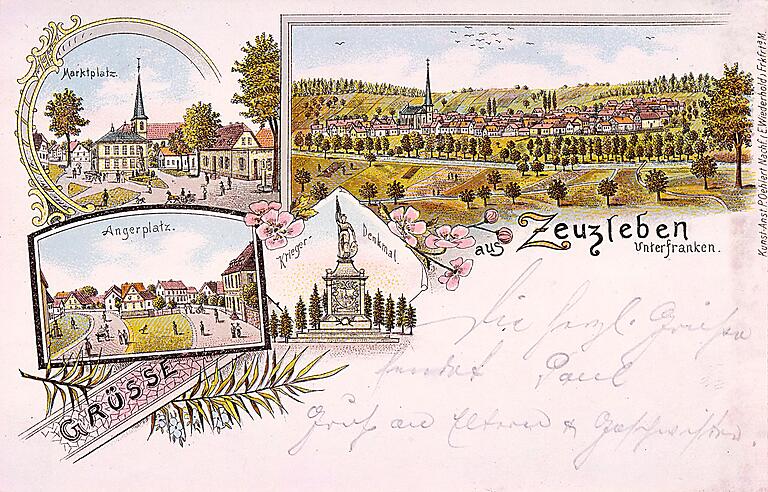 Marktplatz.
Angerplatz.
Krieger-Denkmal.
GRÜSSE
aus Zeuzleben
Unterfranken.
Die herzl. Grüße
sendet Paul
Gruß an Eltern & Geschwister.
Kunst-Anst. P. Oehlert Nachf. (E. Wiederhold) Fkfrt a/M.